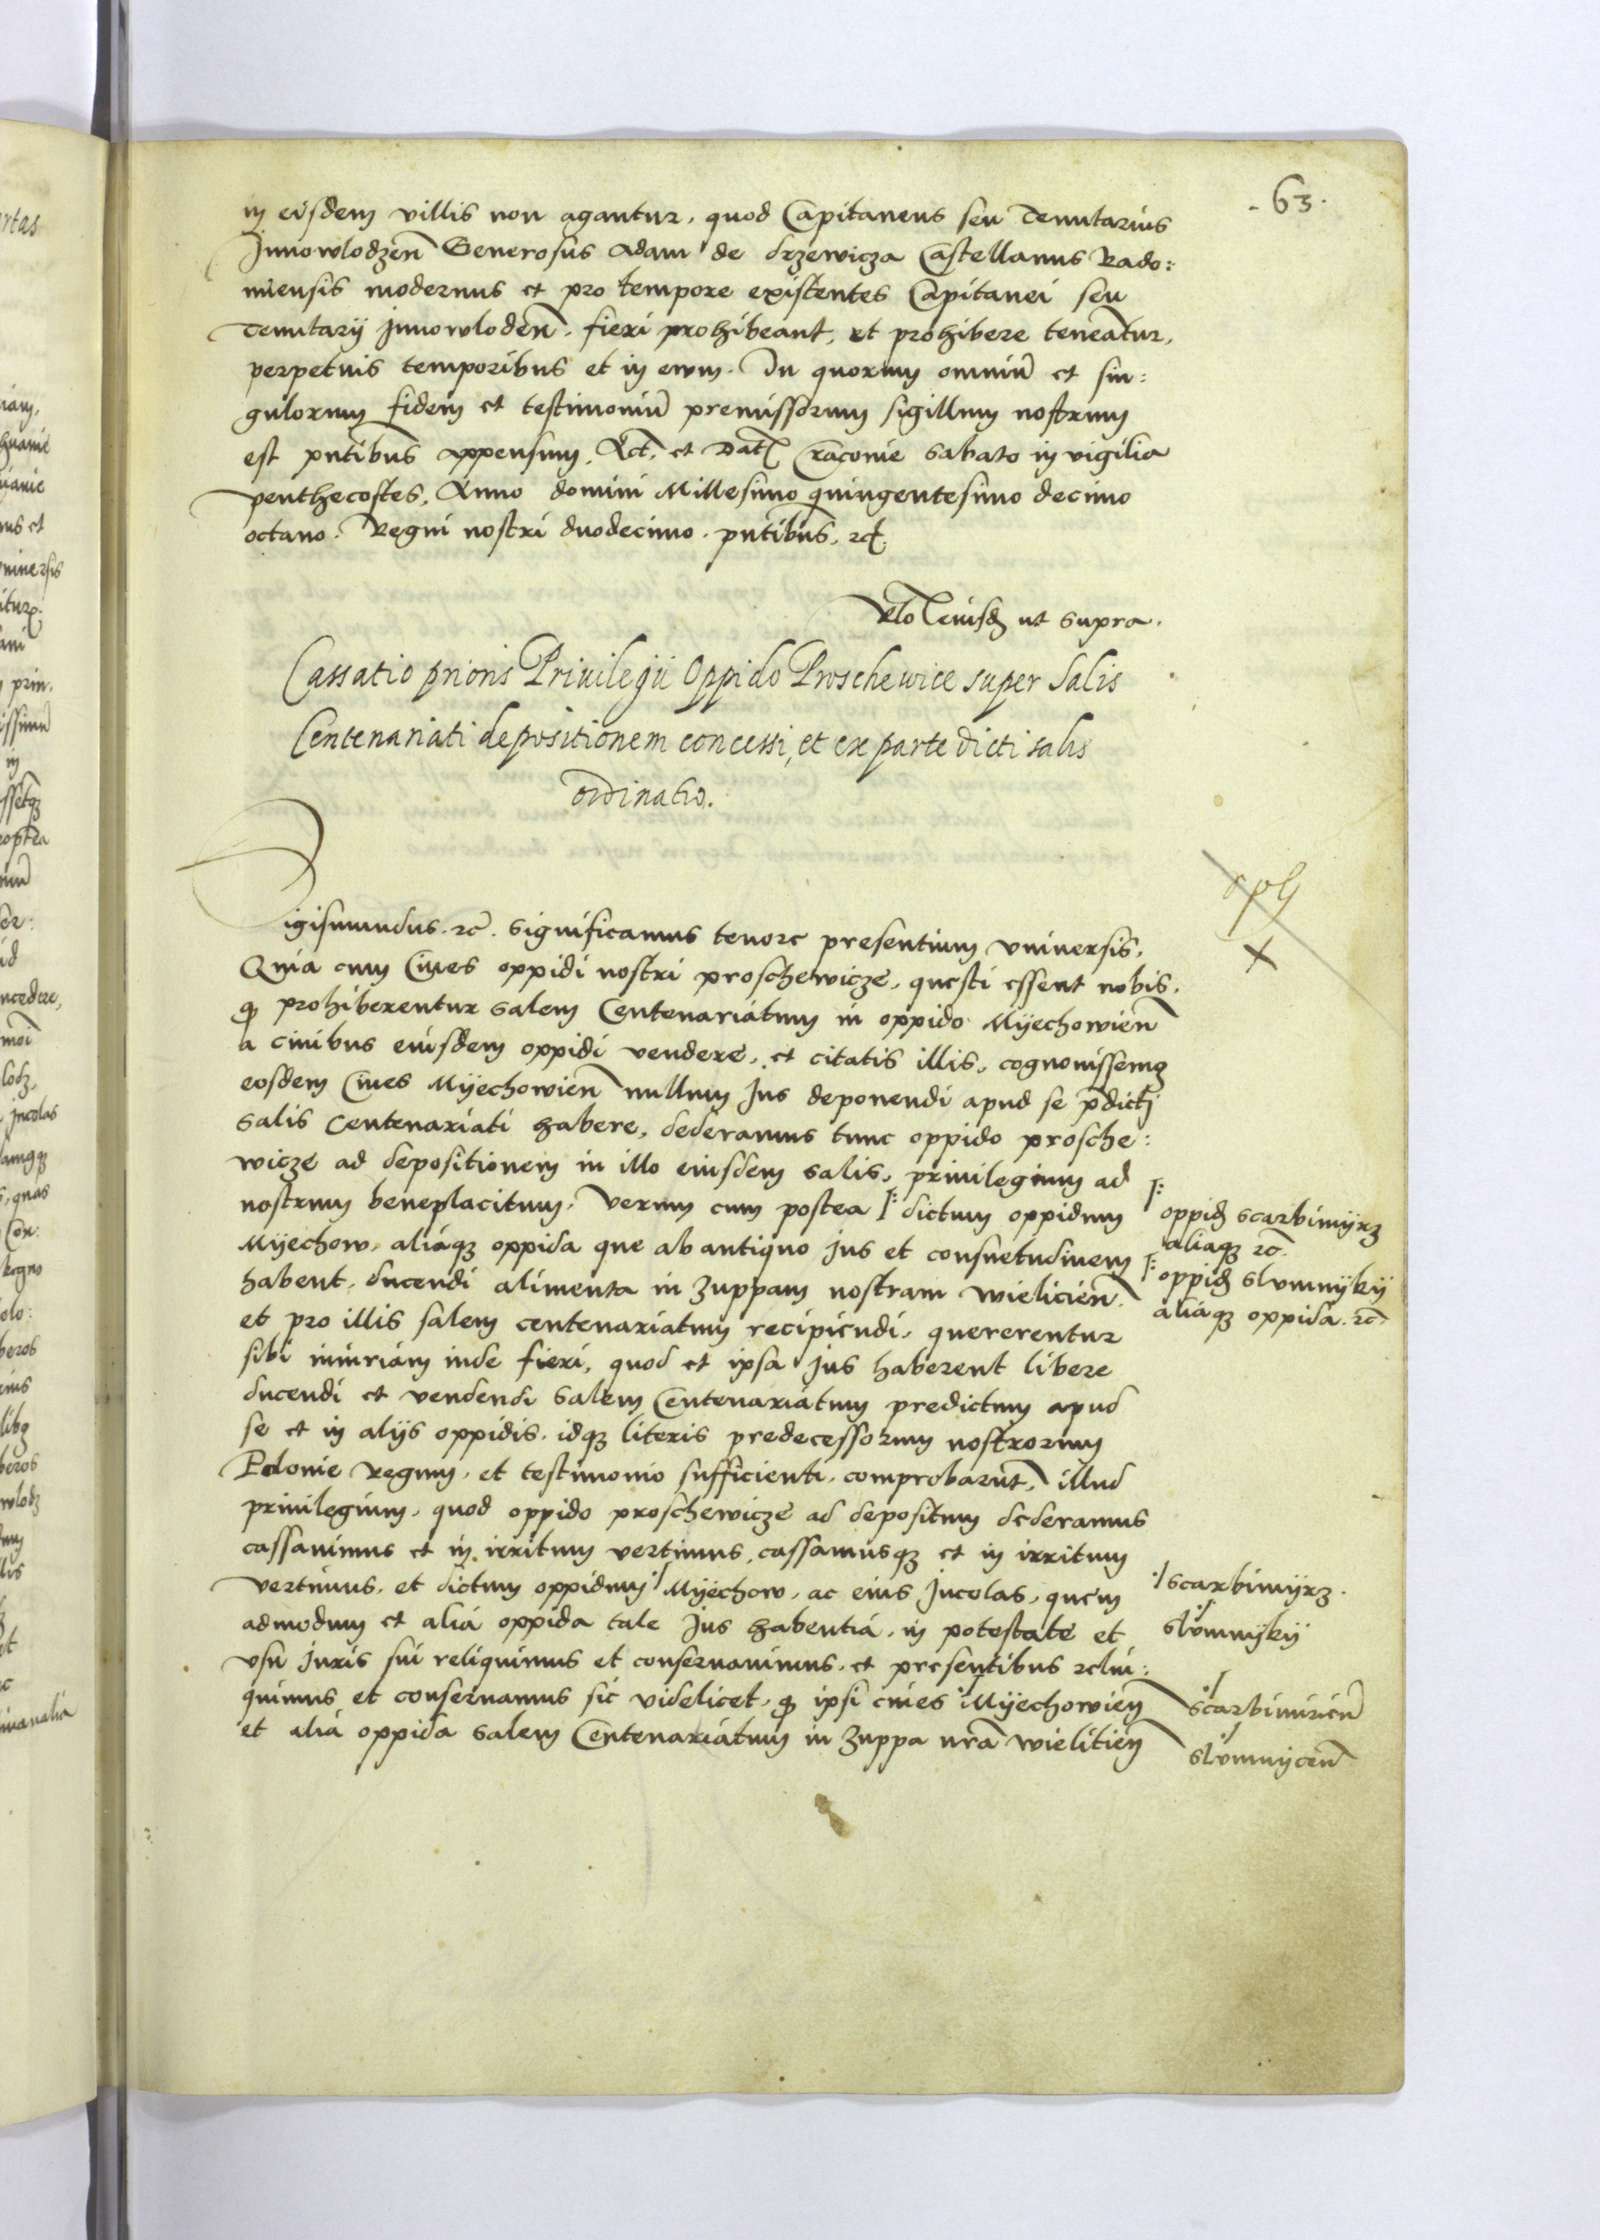 - 63 ·
in eisdem villis non agantur, quod Capitaneus seu Tenutarius
Innowlodzen̄ Generosus Adam de drzewicza Castellanus Rado:
miensis modernus et pro tempore existentes Capitanei seu
Tenutarij Innowloden̄. fieri prohibeant, et prohibere teneātur,
perpetuis temporibus et in evum. In quorum omniū et sin:
gulorum fidem et testimoniū premissorum sigillum nostrum
est pñtibus appensum. Act. et Dat. Cracovie Sabato in vigilia
penthecostes, Anno domini Millesimo quingentesimo decimo
octavo. Regni nostri duodecimo. pñtibus. etc.
Rlo eiusd ut supra.
Cassatio prioris Priuilegii Oppido Proschewice super Salis
Centenariati depositionem concessi, et ex parte dicti salis
ordinatio.
Sigismundus. etc. Significamus tenore presentium vniuersis.
Quia cum Ciues oppidi nostri proschewicze, questi essent nobis.
q prohiberentur salem Centenariatum in oppido Myechowien̄
a ciuibus eiusdem oppidi vendere, et citatis illis, cognouissemq
eosdem Ciues Myechowien̄ nullum Jus deponendi apud se p̄dicti
salis Centenariati habere, dederamus tunc oppido prosche:
wicze ad depositionem in illo eiusdem salis, priuilegium ad
nostrum beneplacitum. Verum cum postea |: dictum oppidum
Myechow, aliaqz oppida que ab antiquo Jus et consuetudinem
habent, ducendi alimenta in zuppam nostram wielicien̄.
et pro illis salem centenariatum recipiendi, quererentur
sibi iniuriam inde fieri, quod et ipsa Jus haberent libere
ducendi et vendendi salem Centenariatum predictum apud
se et in alijs oppidis. idqz literis predecessorum nostrorum
Polonie regum, et testimonio sufficienti, comprobarūt, illud
priuilegium, quod oppido proschewicze ad depositum dederamus
cassauimus et in irritum vertimus, cassamusqz et in irritum
vertimus. et dictum oppidum ·/ Myechow, ac eius Incolas, quem
admodum et alia oppida tale Jus habentia, in potestate et
vsu Juris sui reliquimus et conseruauimus, et presentibus relin:
quimus et conseruamus sic videlicet, q ipsi ciues ·/ Myechowien̄
et alia oppida salem Centenariatum in zuppa nr̄a wielitien̄
|: oppid scarbimyrz
aliaqz etc.
|: oppid slomnyky
aliaqz oppida. etc.
·/ scarbimyrz.
slomnyky
·/ scarbimirien̄
slomnycen̄